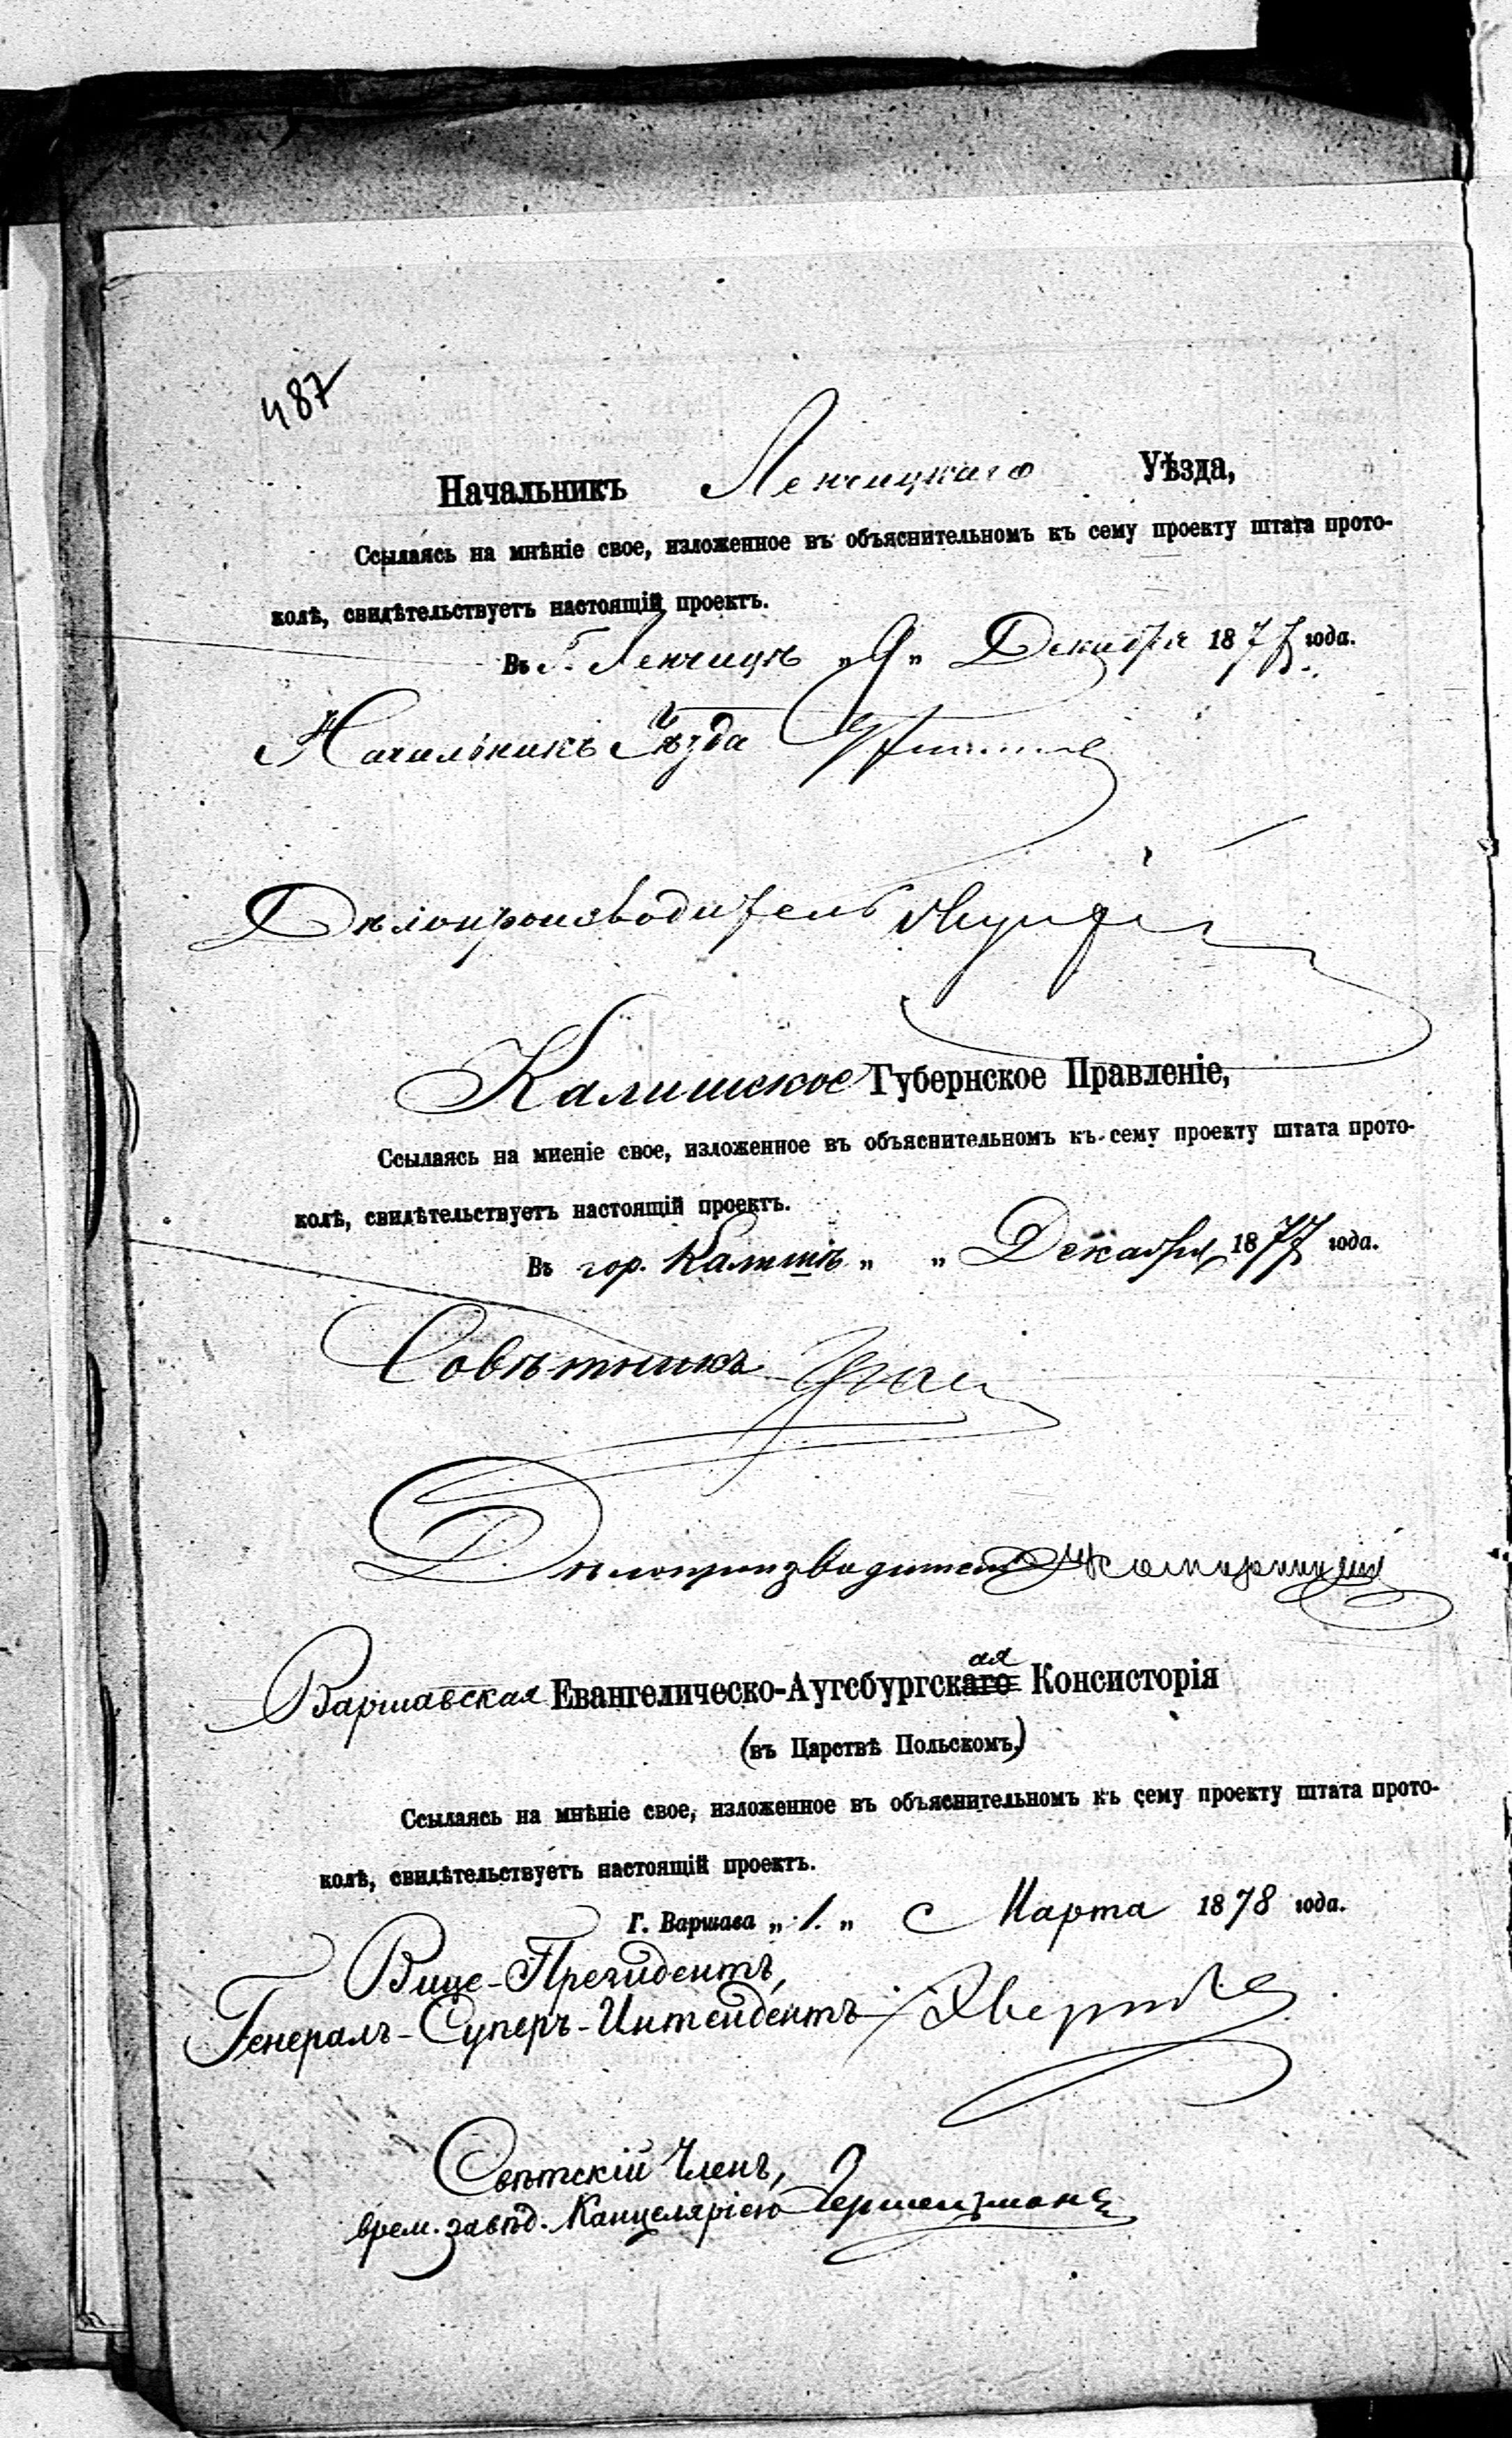 487
Начальникъ Ленчицкаго Уѣзда,
Ссылаясь на мнѣніе свое, изложенное въ объяснительномъ къ сему проекту штата прото-
колѣ, свидѣтельствуетъ настоящій проектъ.
Въ г. Ленчицѣ „9„ Декабря 1877 года.
Начальникъ Уѣзда
Дѣлопроизводитель
Калишское Губернское Правленіе,
Ссылаясь на миеніе свое, изложенное въ объяснительномъ къ сему проекту штата прото-
колѣ, свидѣтельствуетъ настоящій проектъ.
Въ гор. Калишѣ „ „ Декабря 1877 года.
Совѣтникъ
Дѣлопроизводитель
ая
Варшавская Евангелическо-Аугсбургскаго Консисторія
(въ Царствѣ Польскомъ)
Ссылаясь на мнѣніе свое, изложенное въ объяснительномъ къ сему проекту штата прото-
колѣ, свидѣтельствуетъ настоящій проектъ.
Г. Варшава „ 1. „ Марта 1878 года.
Вице-Президентъ,
Генералъ-Суперъ-Интендентъ Эверть
Свѣтскій Членъ,
врем. завѣд. Канцеляріею